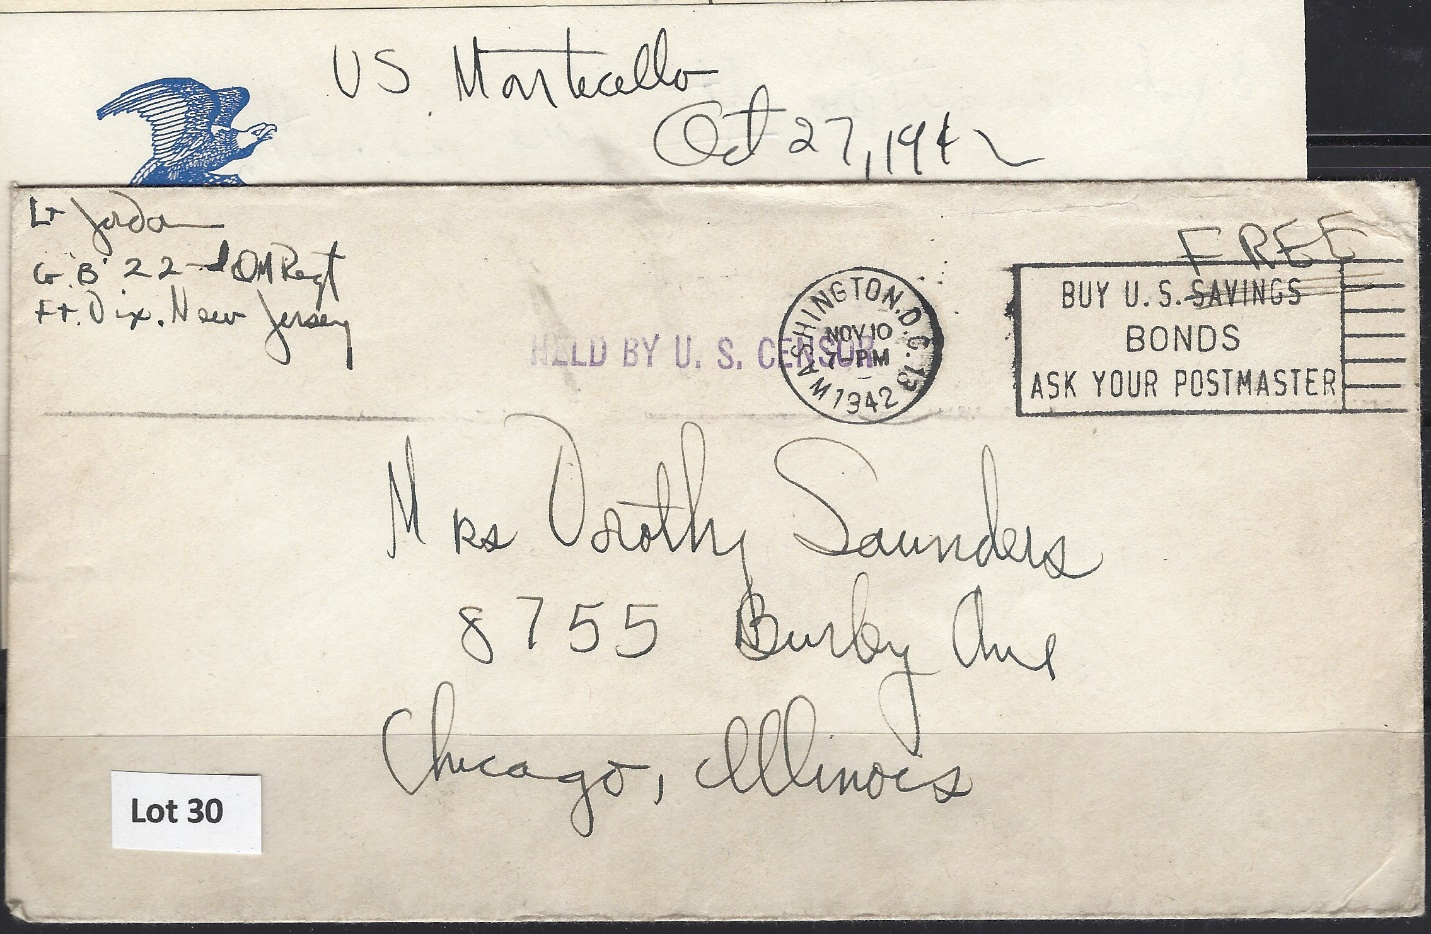 US Monticello
Oct 27, 1942
Lt Jordan
Co. B' 22nd QM Regt
Ft. Dix. New Jersey
FREE
HELD BY U. S. CENSOR
WASHINGTON, D. C. 13
NOV 10
7-PM
1942
BUY U. S. SAVINGS
BONDS
ASK YOUR POSTMASTER
Mrs Dorothy Saunders
8755 Burley Ave
Chicago, Illinois
Lot 30